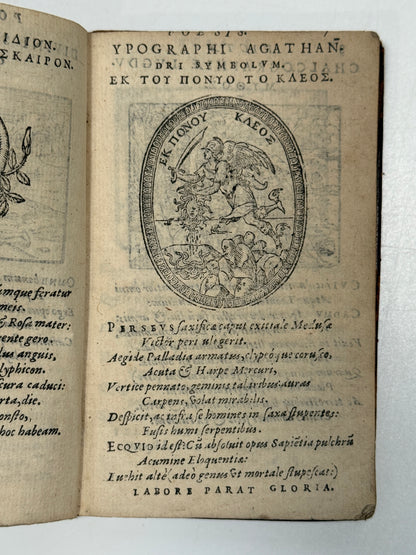 PO
IDION.
ΣΚΑΙΡΟΝ.
imque feratur
mens.
& Rosa mater:
ente gero.
dus anguis.
lyphicon.
cura caduci:
rta, die.
onsto,
hoc habeam.
POESIS.
YPOGRAPHI AGATHAN̄
DRI SYMBOLVM.
ΕΚ ΤΟΥ ΠΟΝΥΟ ΤΟ ΚΛΕΟΣ.
ΕΚ ΠΟΝΟΥ ΚΛΕΟΣ
PERSEVS saxificæ caput exitiale Medusæ
Victor peri ulegerit.
Aegide Palladia armatus, clypeoque corusco,
Acuta & Harpe Mercuri,
Vertice pennato, geminis talaribus auras
Carpens, volat mirabilis.
Despicit, ac tasta se homines in saxa stupentes:
Fusis humi serpentibus.
ECQVID id est: Cū absoluit opus Sapiētia pulchrū
Acumine Eloquentiæ:
Euehit altè (adeò genus vt mortale stupescat:)
LABORE PARAT GLORIA.